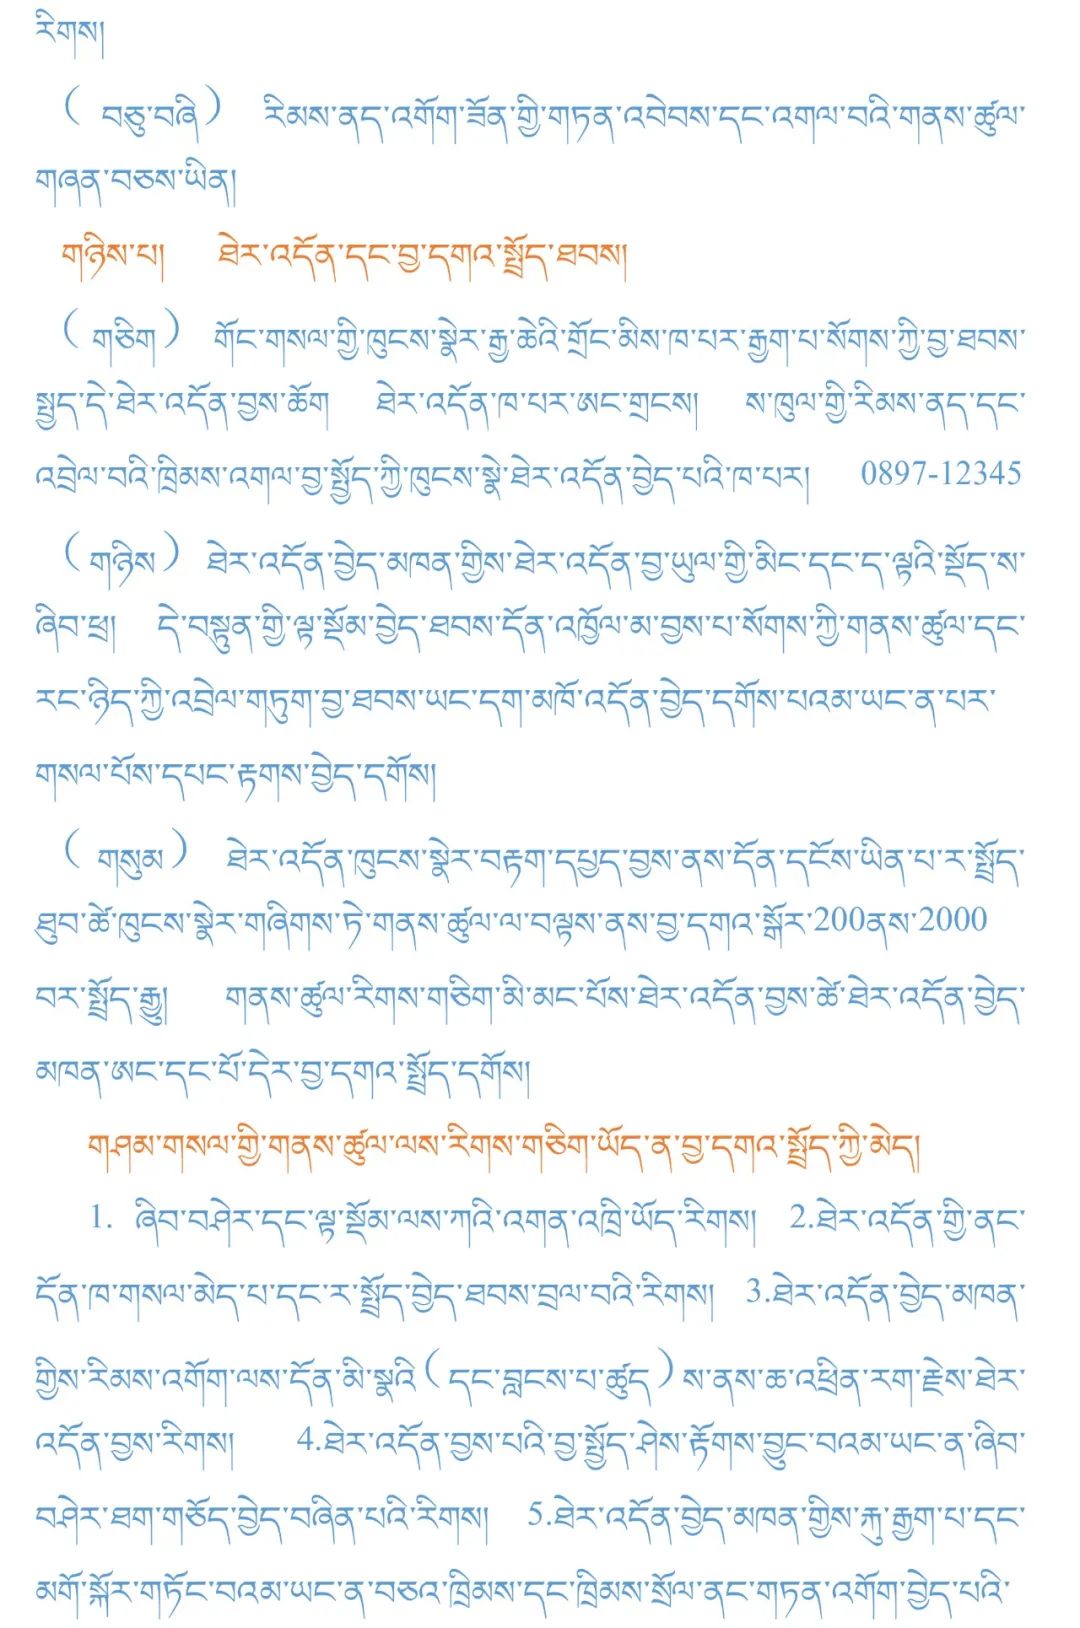 རིགས།
（ བཅུ་བཞི） རིམས་ནད་འགོག་ཟོན་གྱི་གཏན་འབེབས་དང་འགལ་བའི་གནས་ཚུལ་
གཞན་བཅས་ཡིན།
གཉིས་པ། ཐེར་འདོན་དང་བྱ་དགའ་སྤྲོད་ཐབས།
（ གཅིག） གོང་གསལ་གྱི་ཁུངས་སྣེར་རྒྱ་ཆེའི་གྲོང་མིས་ཁ་པར་རྒྱག་པ་སོགས་ཀྱི་བྱ་ཐབས་
སྤྱད་དེ་ཐེར་འདོན་བྱས་ཆོག ཐེར་འདོན་ཁ་པར་ཨང་གྲངས། ས་ཁུལ་གྱི་རིམས་ནད་དང་
འབྲེལ་བའི་ཁྲིམས་འགལ་བྱ་སྤྱོད་ཀྱི་ཁུངས་སྣེ་ཐེར་འདོན་བྱེད་པའི་ཁ་པར། 0897-12345
（གཉིས） ཐེར་འདོན་བྱེད་མཁན་གྱིས་ཐེར་འདོན་བྱ་ཡུལ་གྱི་མིང་དང་ད་ལྟའི་སྡོད་ས་
ཞིབ་ཕྲ། དེ་བསྟུན་གྱི་ལྟ་སྡོམ་བྱེད་ཐབས་དོན་འཁྱོལ་མ་བྱས་པ་སོགས་ཀྱི་གནས་ཚུལ་དང་
རང་ཉིད་ཀྱི་འབྲེལ་གཏུག་བྱ་ཐབས་ཡང་དག་མཁོ་འདོན་བྱེད་དགོས་པའམ་ཡང་ན་པར་
གསལ་པོས་དཔང་རྟགས་བྱེད་དགོས།
（ གསུམ） ཐེར་འདོན་ཁུངས་སྣེར་བརྟག་དཔྱད་བྱས་ནས་དོན་དངོས་ཡིན་པ་ར་སྤྲོད་
ཐུབ་ཚེ་ཁུངས་སྣེར་གཞིགས་ཏེ་གནས་ཚུལ་ལ་བལྟས་ནས་བྱ་དགའ་སྒོར་200ནས་2000
བར་སྤྲོད་རྒྱུ། གནས་ཚུལ་རིགས་གཅིག་མི་མང་པོས་ཐེར་འདོན་བྱས་ཚེ་ཐེར་འདོན་བྱེད་
མཁན་ཨང་དང་པོ་དེར་བྱ་དགའ་སྤྲོད་དགོས།
གཤམ་གསལ་གྱི་གནས་ཚུལ་ལས་རིགས་གཅིག་ཡོད་ན་བྱ་དགའ་སྤྲོད་ཀྱི་མེད།
1. ཞིབ་བཤེར་དང་ལྟ་སྡོམ་ལས་ཀའི་འགན་འཁྲི་ཡོད་རིགས། 2.ཐེར་འདོན་གྱི་ནང་
དོན་ཁ་གསལ་མེད་པ་དང་ར་སྤྲོད་བྱེད་ཐབས་བྲལ་བའི་རིགས། 3.ཐེར་འདོན་བྱེད་མཁན་
གྱིས་རིམས་འགོག་ལས་དོན་མི་སྣའི（དང་བླངས་པ་ཚུད）ས་ནས་ཆ་འཕྲིན་རག་རྗེས་ཐེར་
འདོན་བྱས་རིགས། 4.ཐེར་འདོན་བྱས་པའི་བྱ་སྤྱོད་ཤེས་རྟོགས་བྱུང་བའམ་ཡང་ན་ཞིབ་
བཤེར་ཐག་གཅོད་བྱེད་བཞིན་པའི་རིགས། 5.ཐེར་འདོན་བྱེད་མཁན་གྱིས་རྐུ་རྒྱག་པ་དང་
མགོ་སྐོར་གཏོང་བའམ་ཡང་ན་བཅའ་ཁྲིམས་དང་ཁྲིམས་སྲོལ་ནང་གཏན་འགོག་བྱེད་པའི་